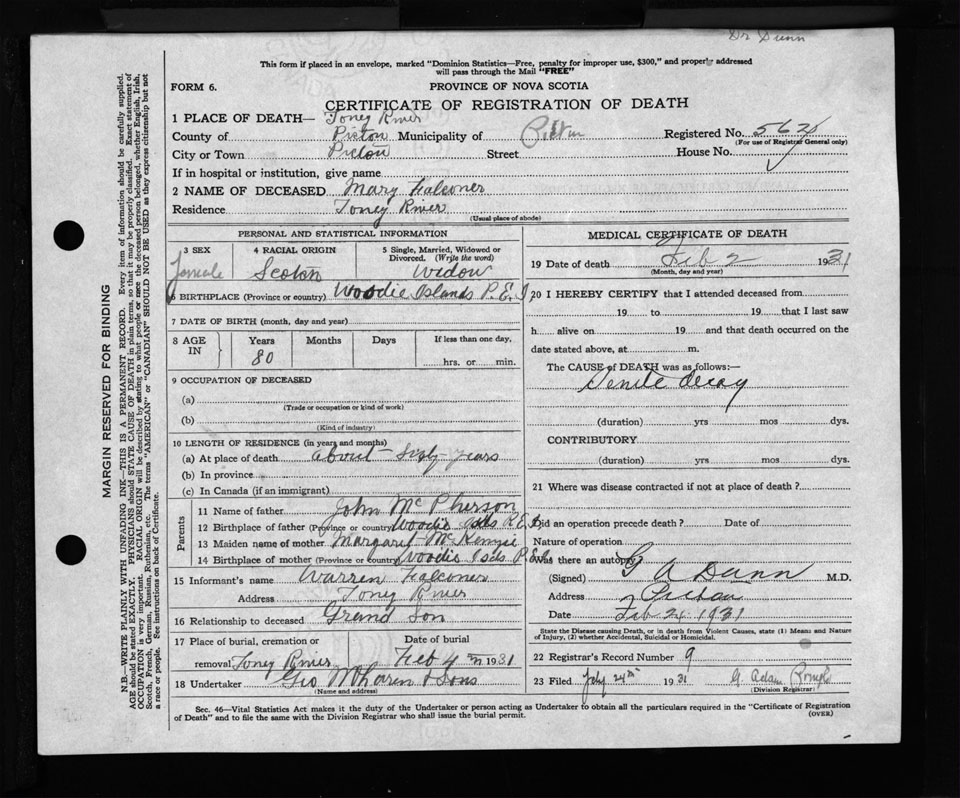 Dr Dunn
This form if placed in an envelope, marked "Dominion Statistics—Free, penalty for improper use, $300," and properly addressed
will pass through the Mail "FREE"
FORM 6.
PROVINCE OF NOVA SCOTIA
CERTIFICATE OF REGISTRATION OF DEATH
1 PLACE OF DEATH— Toney River
County of Pictou Municipality of Pictou Registered No.
(For use of Registrar General only)
City or Town Pictou Street House No.
If in hospital or institution, give name
2 NAME OF DECEASED Mary Falconer
Residence Toney River
(Usual place of abode)
PERSONAL AND STATISTICAL INFORMATION
3 SEX 4 RACIAL ORIGIN 5 Single, Married, Widowed or
Divorced. (Write the word)
Female Scotch Widow
6 BIRTHPLACE (Province or country) Woodie Islands P.E.I
7 DATE OF BIRTH (month, day and year)
8 AGE IN Years Months Days If less than one day,
80 hrs. or min.
9 OCCUPATION OF DECEASED
(a)
(Trade or occupation or kind of work)
(b)
(Kind of industry)
10 LENGTH OF RESIDENCE (in years and months)
(a) At place of death about Sixty years
(b) In province
(c) In Canada (if an immigrant)
Parents
11 Name of father John McPherson
12 Birthplace of father (Province or country) Woodie Isds P.E.I
13 Maiden name of mother Margaret McKenzie
14 Birthplace of mother (Province or country) Woodie Isds P.E.I
15 Informant's name Warren Falconer
Address Toney River
16 Relationship to deceased Grand Son
17 Place of burial, cremation or Date of burial
removal Toney River Feb 4 1931
18 Undertaker Geo McLaren & Sons
(Name and address)
MEDICAL CERTIFICATE OF DEATH
19 Date of death Feb 2 1931
(Month, day and year)
20 I HEREBY CERTIFY that I attended deceased from
19 to 19 that I last saw
h alive on 19 and that death occurred on
date stated above, at m.
The CAUSE of DEATH was as follows:—
Senile decay
(duration) yrs mos dys.
CONTRIBUTORY
(duration) yrs mos dys.
21 Where was disease contracted if not at place of death?
Did an operation precede death? Date of
Nature of operation
Was there an autopsy
(Signed) G A Dunn M.D.
Address Pictou
Date Feb 24 1931
State the Disease causing Death, or in death from Violent Causes, state (1) Means and Nature
of Injury, (2) whether Accidental, Suicidal or Homicidal.
22 Registrar's Record Number 9
23 Filed 24th 1931 G. Adam
(Division Registrar)
Sec. 46—Vital Statistics Act makes it the duty of the Undertaker or person acting as Undertaker to obtain all the particulars required in the "Certificate of Registration
of Death" and to file the same with the Division Registrar who shall issue the burial permit.
(OVER)
MARGIN RESERVED FOR BINDING
N.B.—WRITE PLAINLY WITH UNFADING INK—THIS IS A PERMANENT RECORD. Every item of information should be carefully supplied.
AGE should be stated EXACTLY. PHYSICIANS should STATE CAUSE OF DEATH in plain terms, so that it may be properly classified. Exact statement of
OCCUPATION is very important. RACIAL ORIGIN will be described by stating to what people or race the deceased person belonged, whether English, Irish,
Scotch, French, German, Russian, Ruthenian, etc. The terms "AMERICAN" or "CANADIAN" SHOULD NOT BE USED as they express citizenship but not
a race or people. See instructions on back of Certificate.